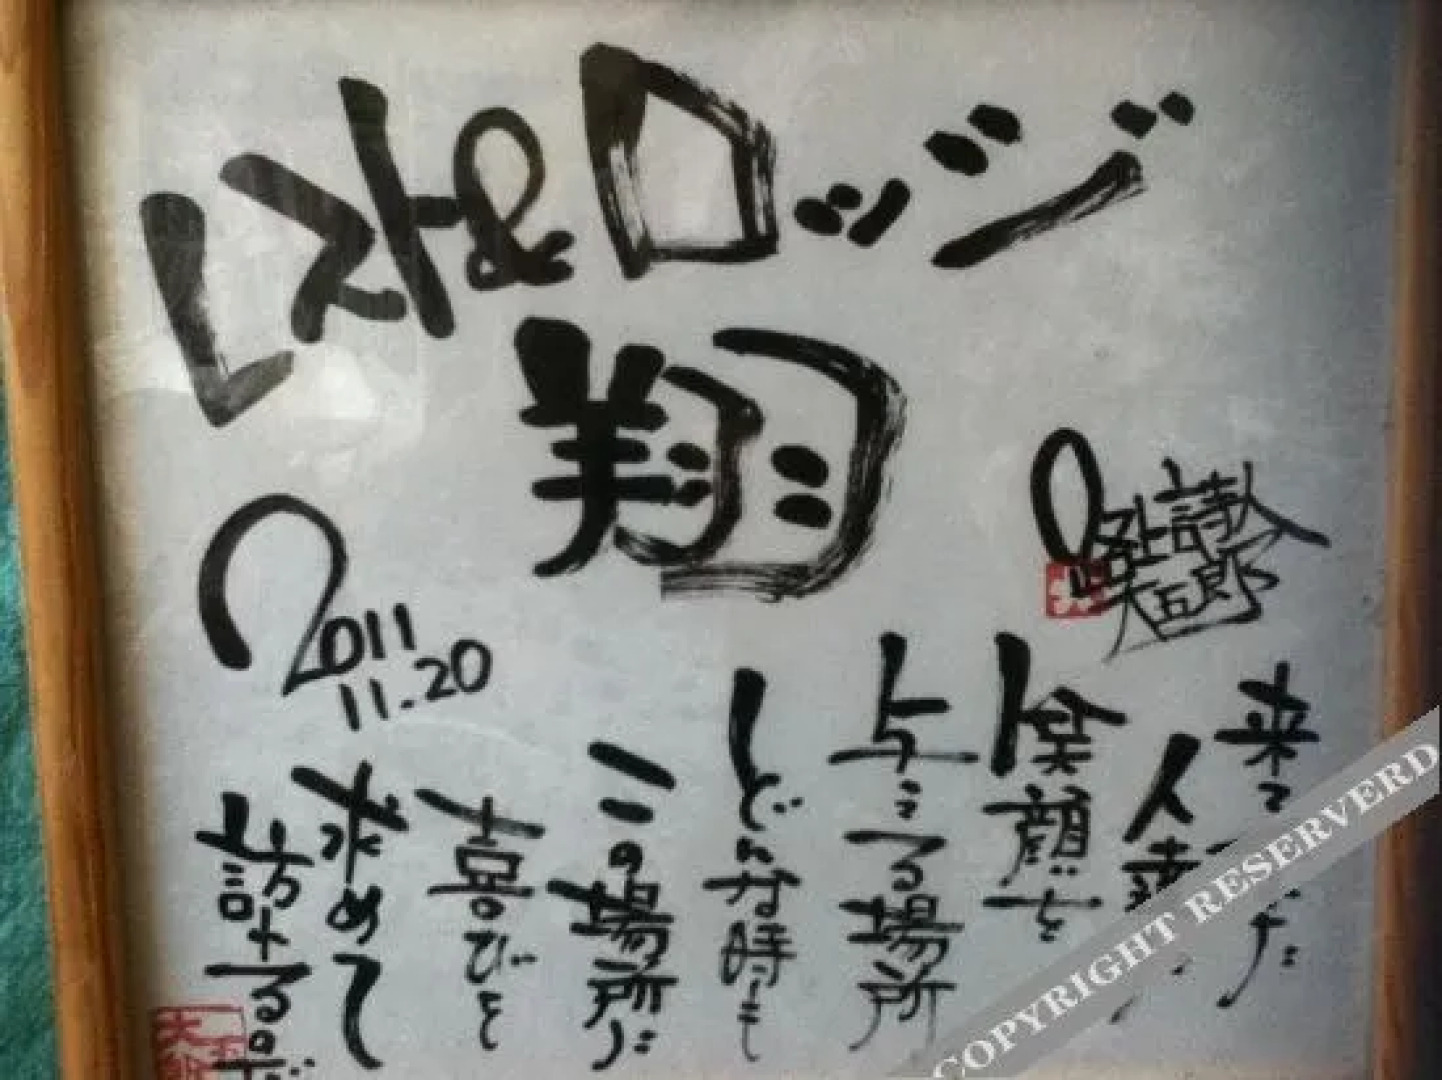 レスト&ロッジ
翔
路上詩人
大五郎
2011
11.20
来て
人達
笑顔を
与える場所
どんな時も
この場所に
喜びを
求めて
訪ずる
COPYRIGHT RESERVERD